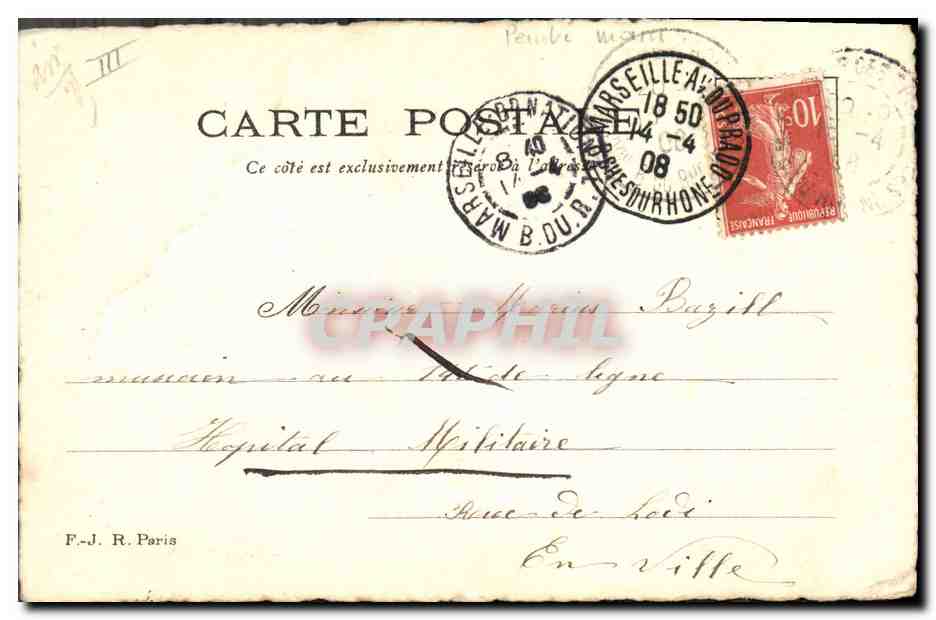 III
CARTE POSTALE
Ce côté est exclusivement réservé à l'adresse
MARSEILLE-AV. DU PRADO
18 50
14 - 4
08
BCHES DU RHONE
MARSEILLE
B. DU R.
10 cs
REPUBLIQUE FRANCAISE
CRAPHIL
Monsieur Marius Bazill
musicien au de ligne
Hopital Militaire
Rue de Lodi
En Ville
F.-J. R. Paris